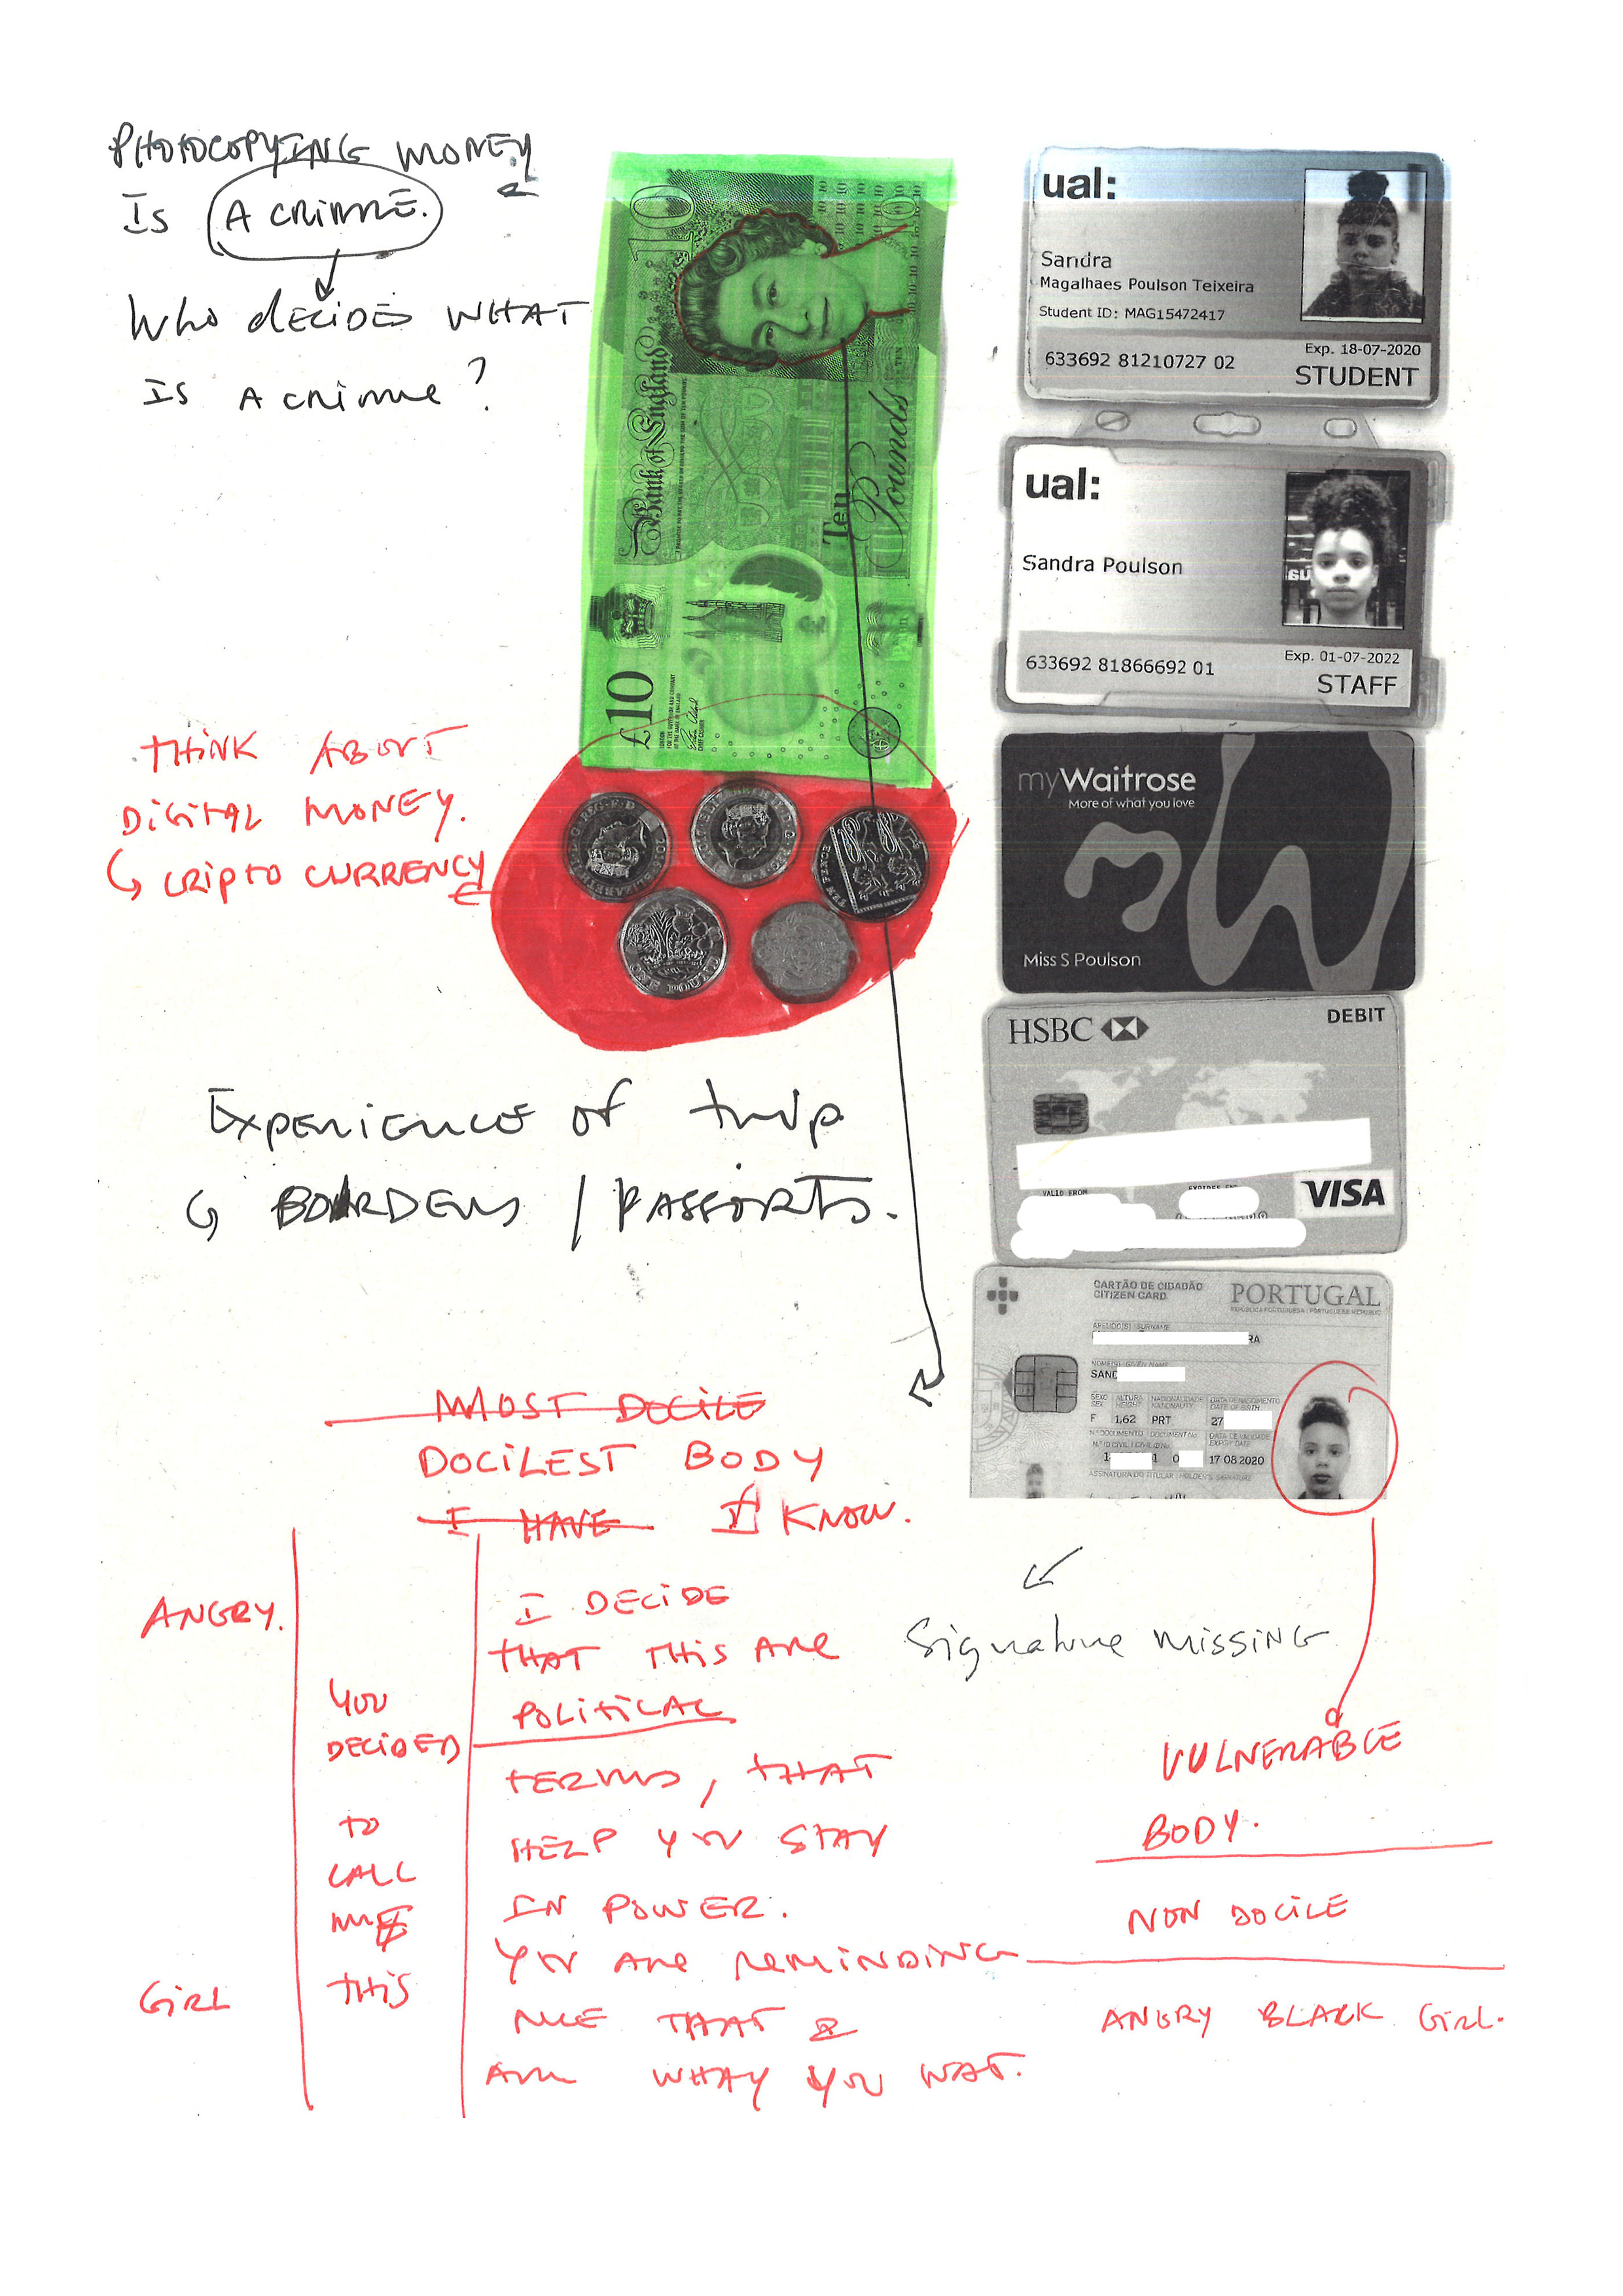 PHOTOCOPYING MONEY
IS A CRIME.
WHO DECIDES WHAT
IS A CRIME?
10
Bank of England
Ten
Pounds
£10
ual:
Sandra
Magalhaes Poulson Teixeira
Student ID: MAG15472417
633692 81210727 02
Exp. 18-07-2020
STUDENT
ual:
Sandra Poulson
633692 81866692 01
Exp. 01-07-2022
STAFF
THINK ABOUT
DIGITAL MONEY.
CRIPTO CURRENCY
myWaitrose
More of what you love
Miss S Poulson
HSBC
DEBIT
VALID FROM
VISA
EXPERIENCE OF TRIP
BORDERS / PASSPORTS.
CARTÃO DE CIDADÃO
CITIZEN CARD
PORTUGAL
SAND
F 1,62 PRT 27
17 08 2020
MOST DOCILE
DOCILEST BODY
I HAVE I KNOW.
Signature missing
ANGRY.
GIRL
YOU
DECIDED
TO
CALL
ME
THIS
I DECIDE
THAT THIS ARE
POLITICAL
TERMS, THAT
HELP YOU STAY
IN POWER.
YOU ARE REMINDING
ME THAT I
AM WHAY YOU WAT.
VULNERABLE
BODY.
NON DOCILE
ANGRY BLACK GIRL.